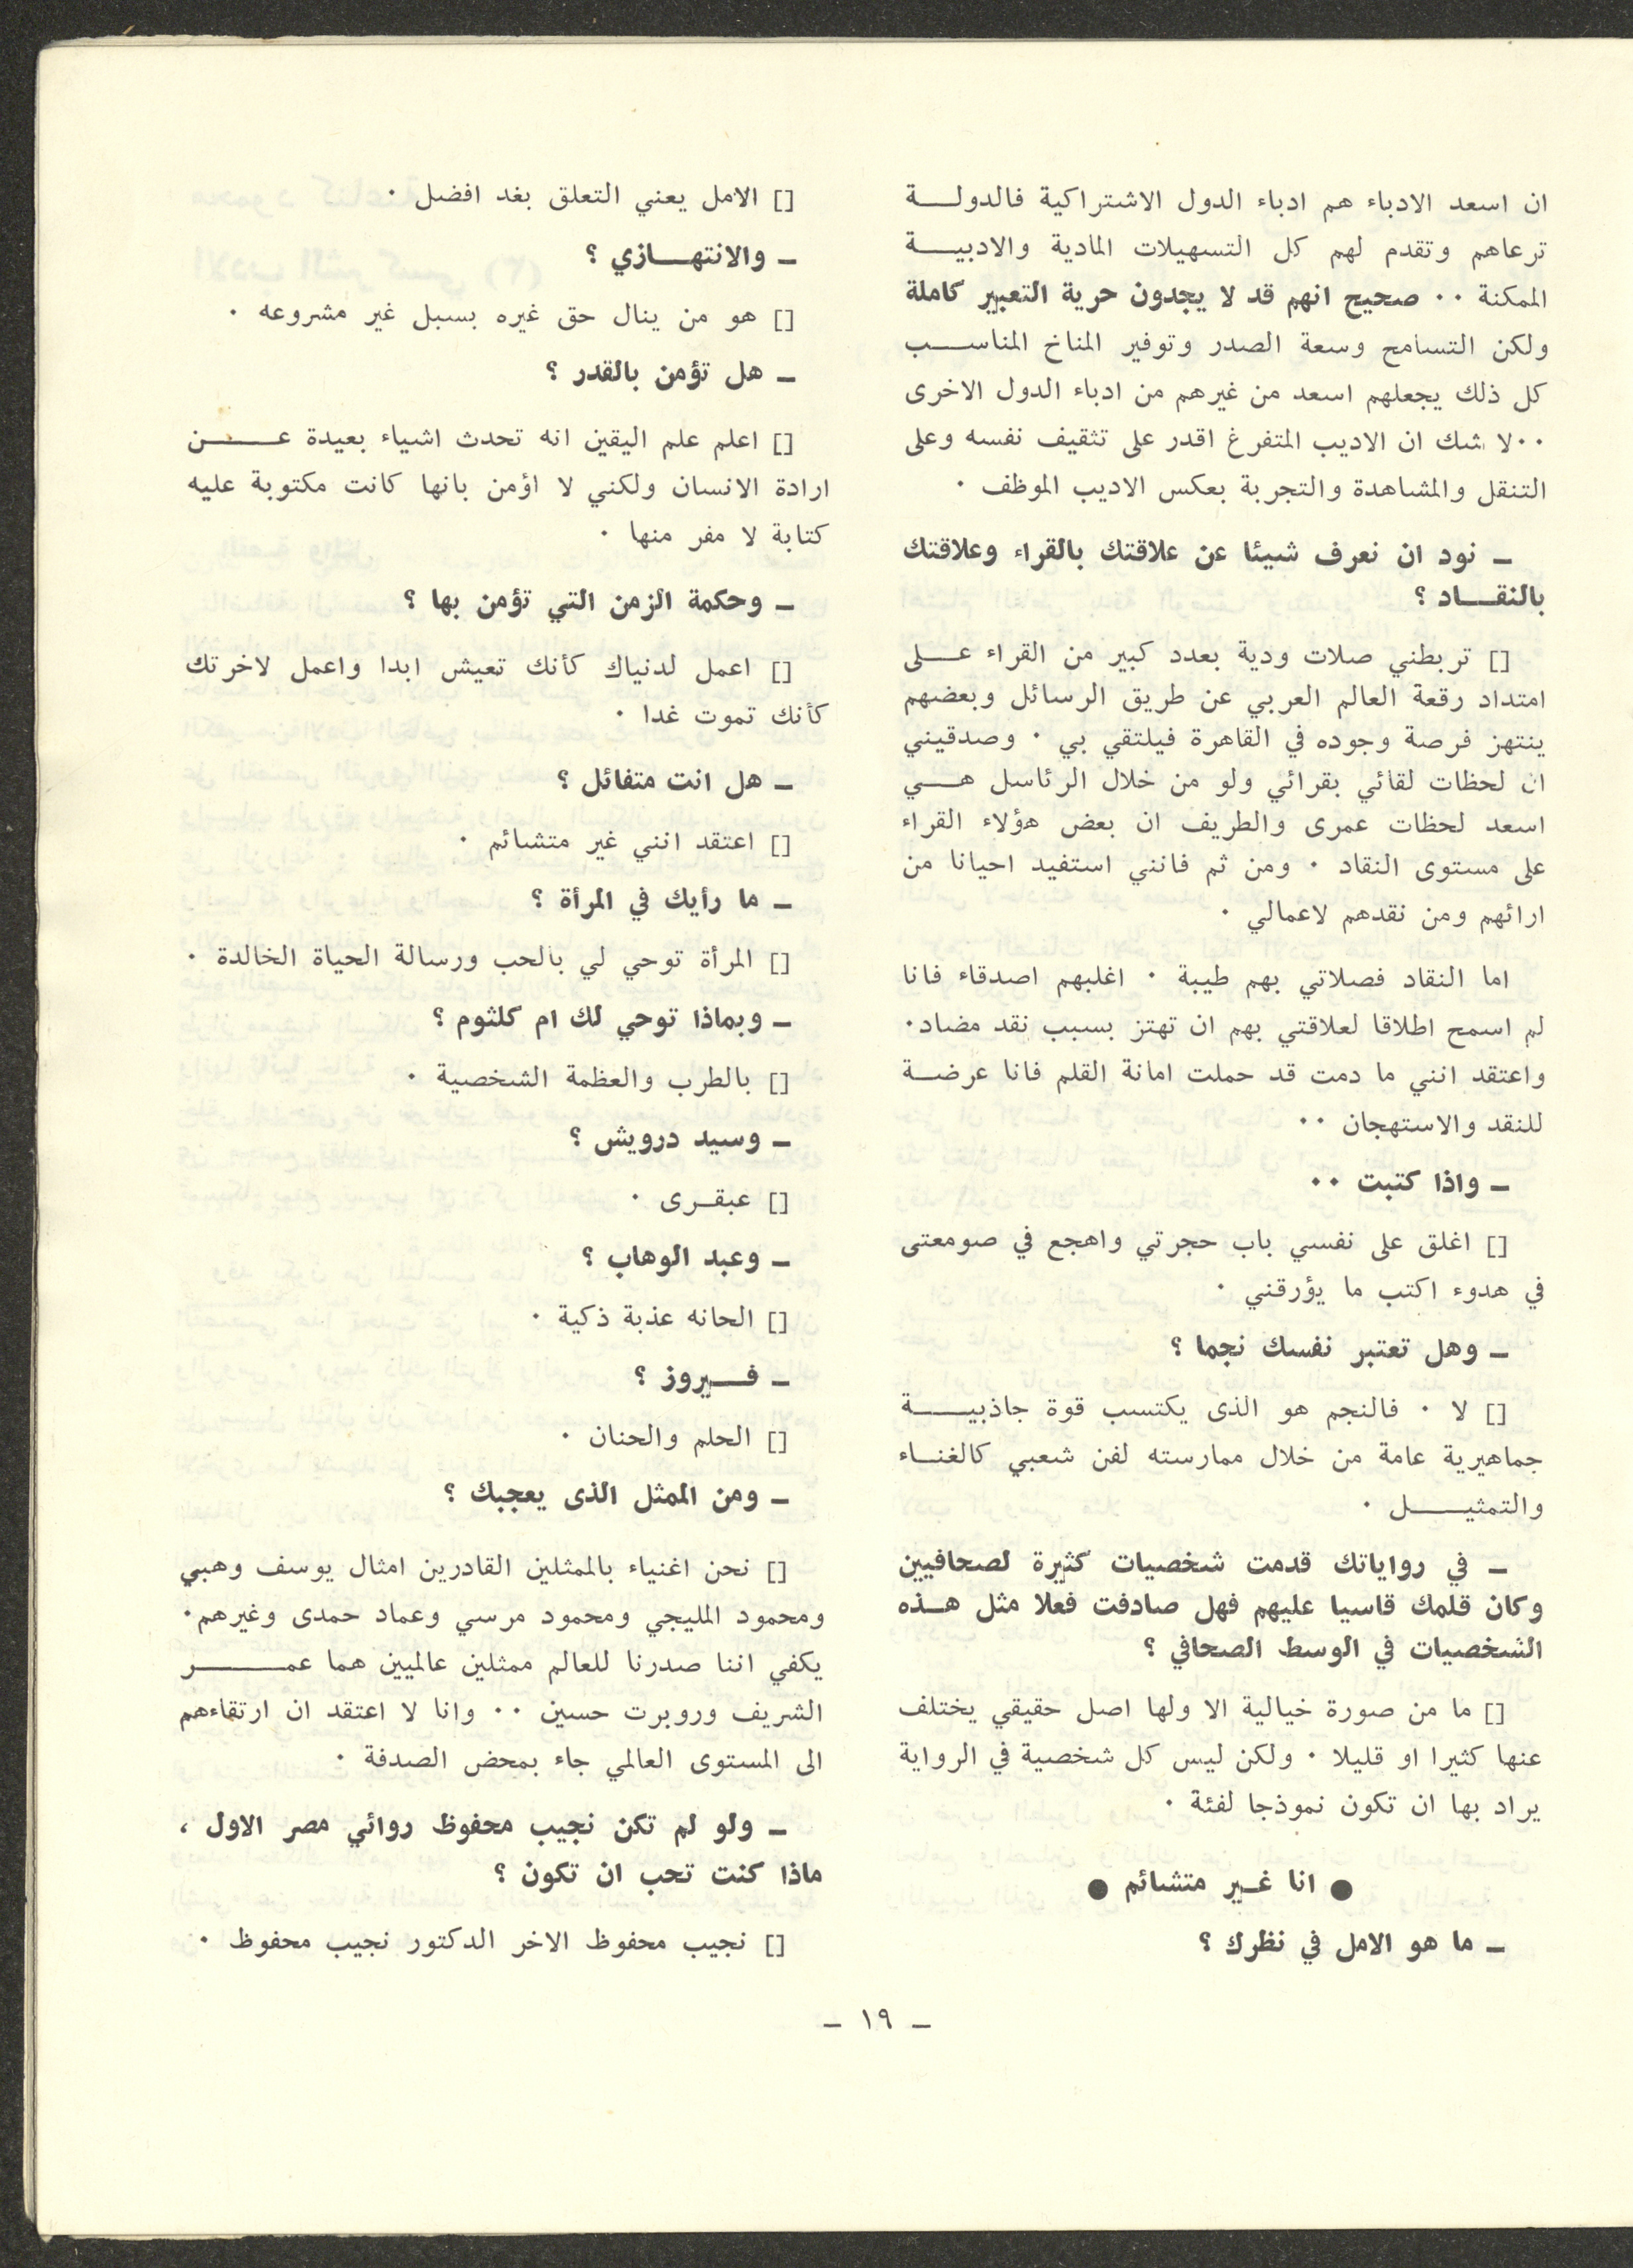 ان اسعد الادباء هم ادباء الدول الاشتراكية فالدولة
ترعاهم وتقدم لهم كل التسهيلات المادية والادبية
الممكنة ٠٠ صحيح انهم قد لا يجدون حرية التعبير كاملة
ولكن التسامح وسعة الصدر وتوفير المناخ المناسب
كل ذلك يجعلهم اسعد من غيرهم من ادباء الدول الاخرى
٠٠لا شك ان الاديب المتفرغ اقدر على تثقيف نفسه وعلى
التنقل والمشاهدة والتجربة بعكس الاديب الموظف ٠
ـ نود ان نعرف شيئا عن علاقتك بالقراء وعلاقتك
بالنقاد ؟
[] تربطني صلات ودية بعدد كبير من القراء على
امتداد رقعة العالم العربي عن طريق الرسائل وبعضهم
ينتهز فرصة وجوده في القاهرة فيلتقي بي ٠ وصدقيني
ان لحظات لقائي بقرائي ولو من خلال الرئاسل هي
اسعد لحظات عمرى والطريف ان بعض هؤلاء القراء
على مستوى النقاد ٠ ومن ثم فانني استفيد احيانا من
ارائهم ومن نقدهم لاعمالي ٠
اما النقاد فصلاتي بهم طيبة ٠ اغلبهم اصدقاء فانا
لم اسمح اطلاقا لعلاقتي بهم ان تهتز بسبب نقد مضاد٠
واعتقد انني ما دمت قد حملت امانة القلم فانا عرضة
للنقد والاستهجان ٠٠
ـ واذا كتبت ٠٠
[] اغلق على نفسي باب حجرتي واهجع في صومعتى
في هدوء اكتب ما يؤرقني ٠
ـ وهل تعتبر نفسك نجما ؟
[] لا ٠ فالنجم هو الذى يكتسب قوة جاذبية
جماهيرية عامة من خلال ممارسته لفن شعبي كالغناء
والتمثيل ٠
ـ في رواياتك قدمت شخصيات كثيرة لصحافيين
وكان قلمك قاسيا عليهم فهل صادفت فعلا مثل هذه
الشخصيات في الوسط الصحافي ؟
[] ما من صورة خيالية الا ولها اصل حقيقي يختلف
عنها كثيرا او قليلا ٠ ولكن ليس كل شخصية في الرواية
يراد بها ان تكون نموذجا لفئة ٠
● انا غير متشائم ●
ـ ما هو الامل في نظرك ؟
[] الامل يعني التعلق بغد افضل ٠
ـ والانتهازي ؟
[] هو من ينال حق غيره بسبل غير مشروعه ٠
ـ هل تؤمن بالقدر ؟
[] اعلم علم اليقين انه تحدث اشياء بعيدة عن
ارادة الانسان ولكني لا اؤمن بانها كانت مكتوبة عليه
كتابة لا مفر منها ٠
ـ وحكمة الزمن التي تؤمن بها ؟
[] اعمل لدنياك كأنك تعيش ابدا واعمل لاخرتك
كأنك تموت غدا ٠
ـ هل انت متفائل ؟
[] اعتقد انني غير متشائم ٠
ـ ما رأيك في المرأة ؟
[] المرأة توحي لي بالحب ورسالة الحياة الخالدة ٠
ـ وبماذا توحي لك ام كلثوم ؟
[] بالطرب والعظمة الشخصية ٠
ـ وسيد درويش ؟
[] عبقرى ٠
ـ وعبد الوهاب ؟
[] الحانه عذبة ذكية ٠
ـ فيروز ؟
[] الحلم والحنان ٠
ـ ومن الممثل الذى يعجبك ؟
[] نحن اغنياء بالممثلين القادرين امثال يوسف وهبي
ومحمود المليجي ومحمود مرسي وعماد حمدى وغيرهم٠
يكفي اننا صدرنا للعالم ممثلين عالميين هما عمر
الشريف وروبرت حسين ٠٠ وانا لا اعتقد ان ارتقاءهم
الى المستوى العالمي جاء بمحض الصدفة ٠
ـ ولو لم تكن نجيب محفوظ روائي مصر الاول ،
ماذا كنت تحب ان تكون ؟
[] نجيب محفوظ الاخر الدكتور نجيب محفوظ ٠
ـ ١٩ ـ